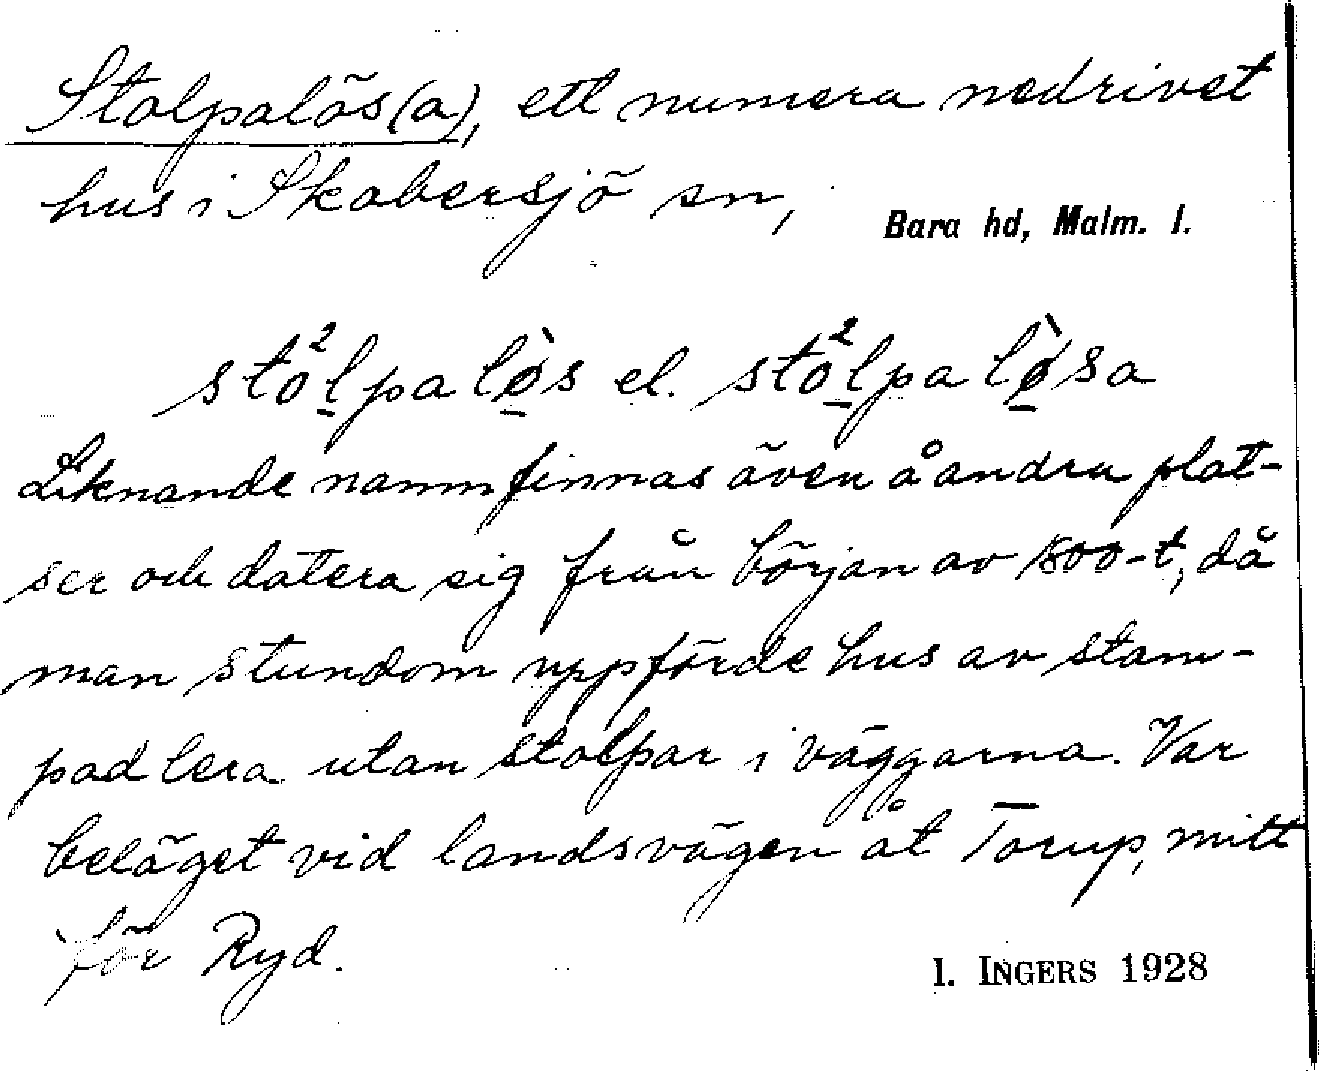 Stolpalös(a), ett numera nedrivet
hus i Skabersjö sn, Bara hd, Malm. l.
stò²lpalø̀s el. stò²lpalø̀sa
Liknande namn finnas även å andra plat-
ser och datera sig från början av 1800-t, då
man stundom uppförde hus av stam-
pad lera utan stolpar i väggarna. Var
beläget vid landsvägen åt Torup, mitt
för Ryd.
I. INGERS 1928